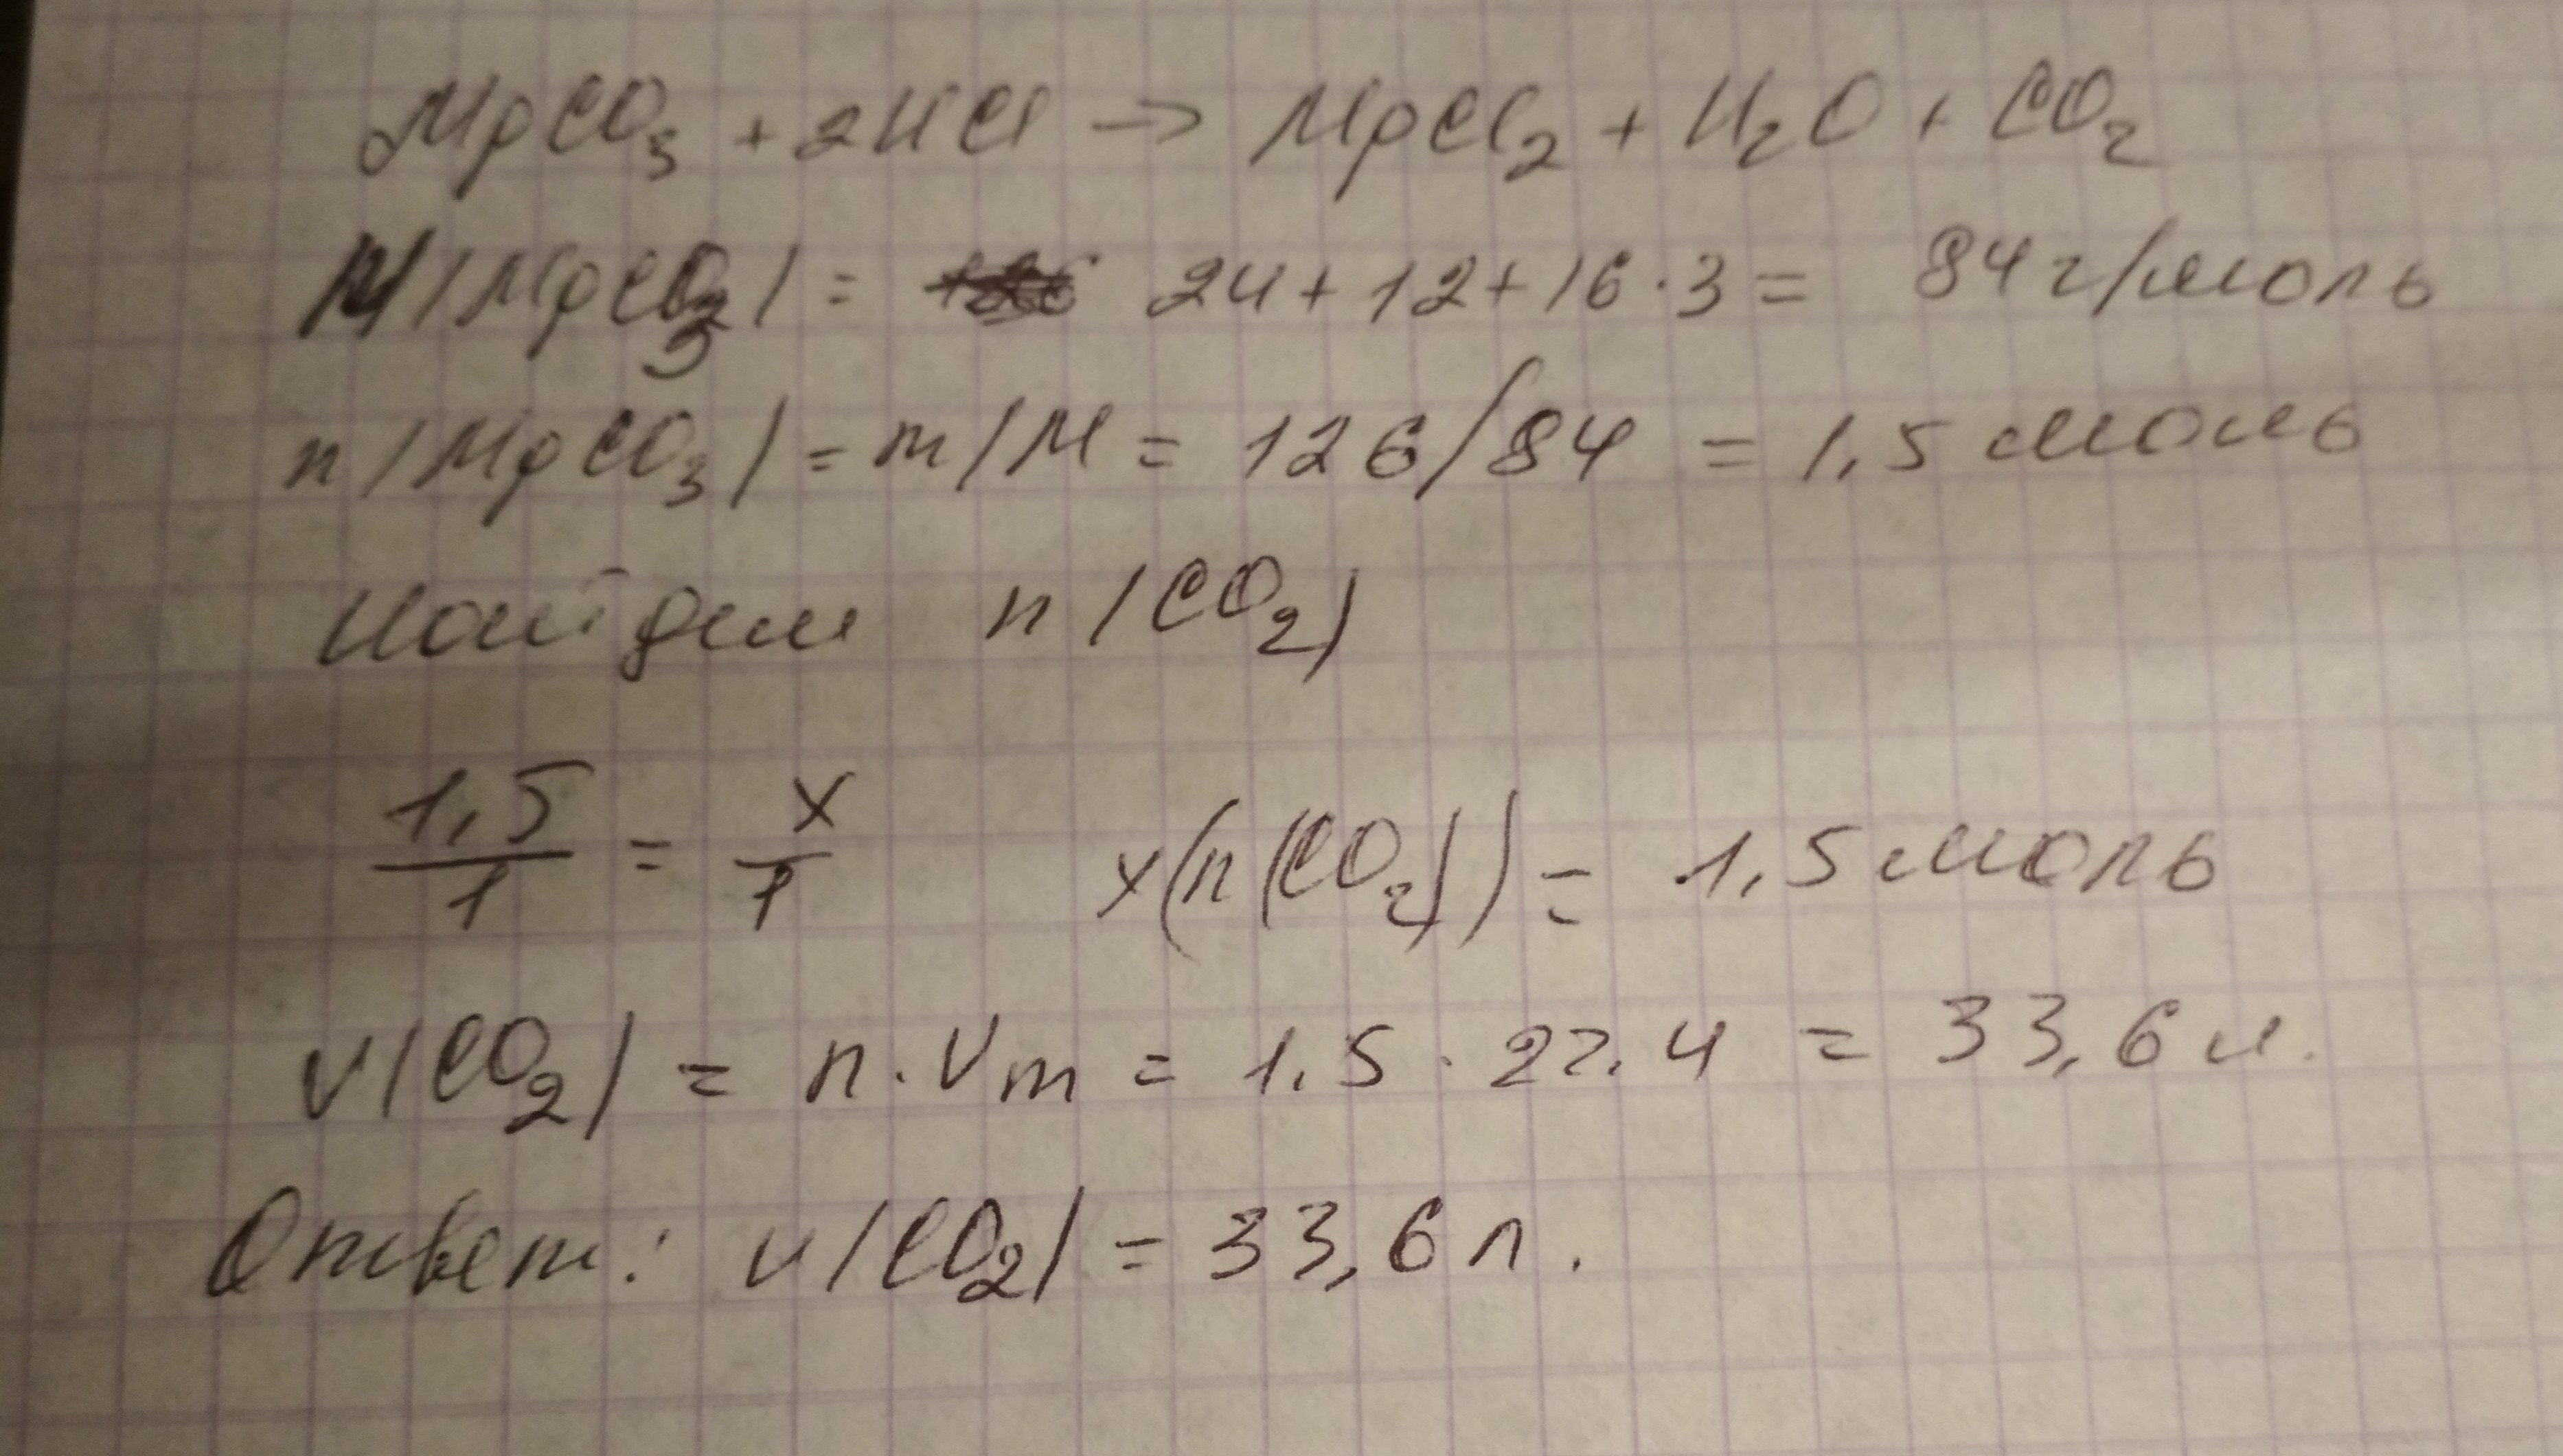 MgCO₃ + 2HCl → MgCl₂ + H₂O + CO₂
M(MgCO₃) = 24 + 12 + 16 · 3 = 84 г/моль
n(MgCO₃) = m/M = 126/84 = 1,5 моль
Найдем n(CO₂)
1,5/1 = x/1 x(n(CO₂)) = 1,5 моль
V(CO₂) = n · Vm = 1,5 · 22,4 = 33,6 л.
Ответ: V(CO₂) = 33,6 л.